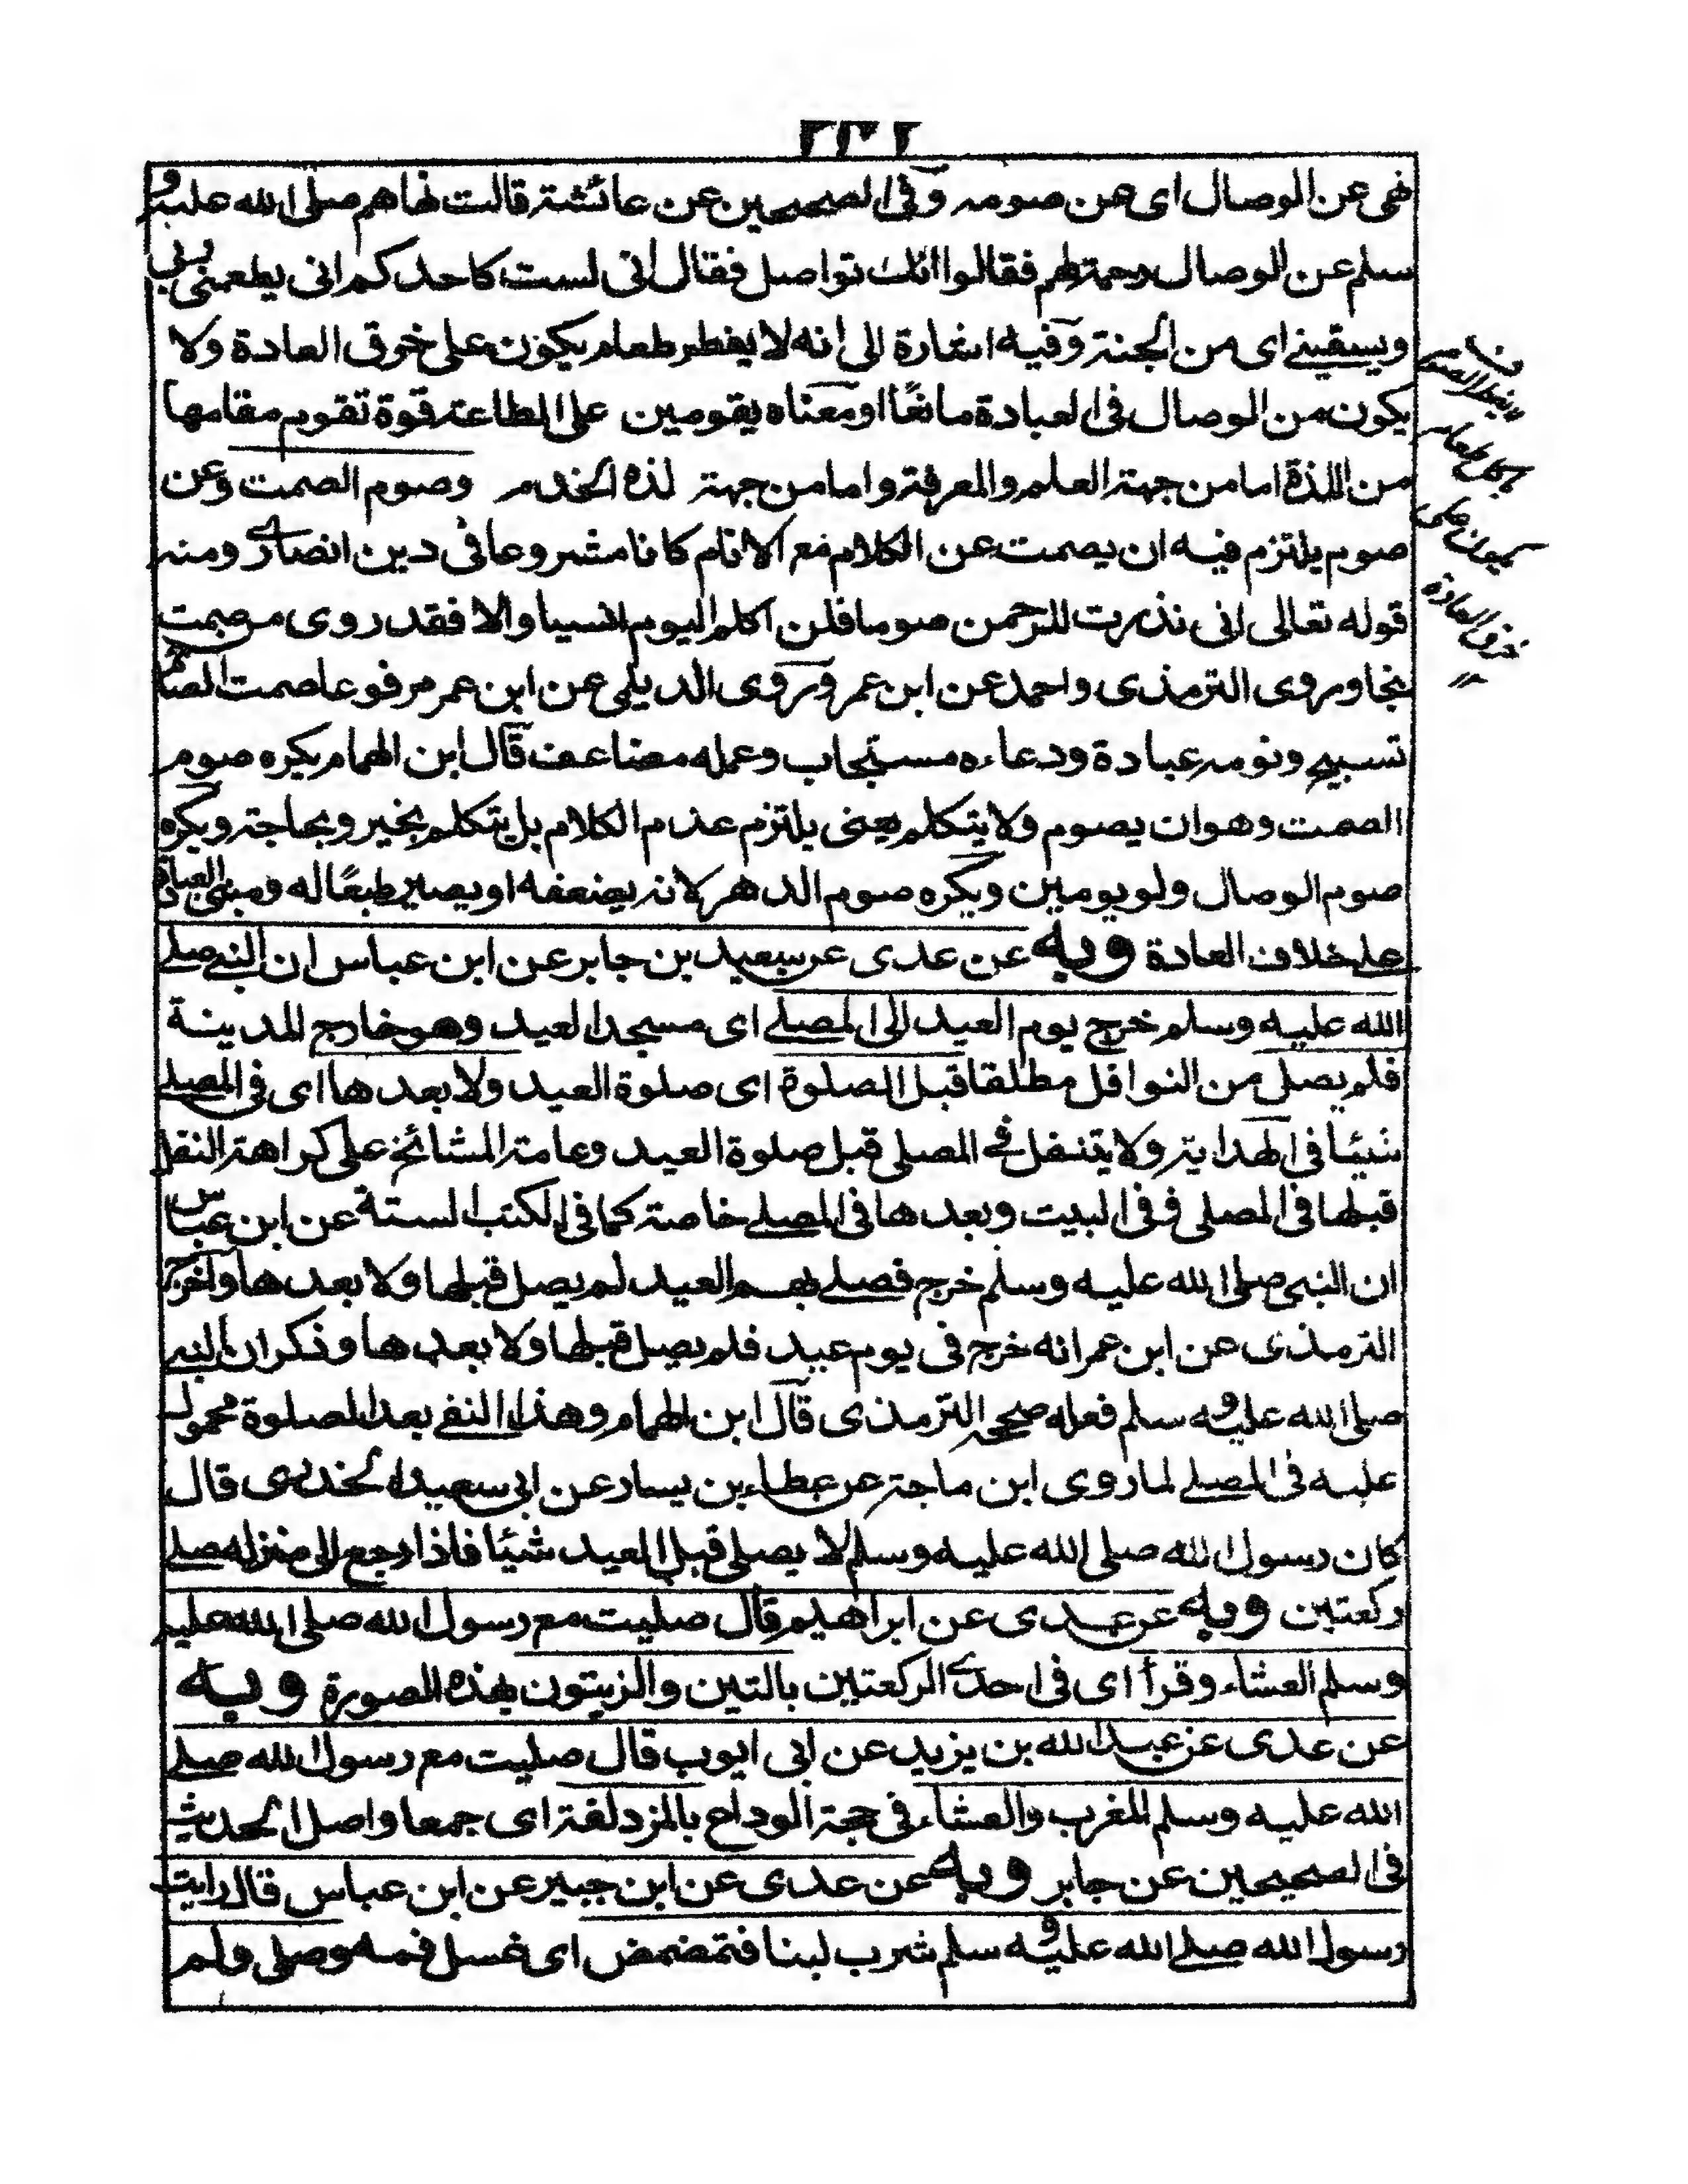 نهى عن الوصال اى عن صومه وفى الصحيحين عن عائشة قالت نهاهم صلى الله عليه و
سلم عن الوصال رحمة لهم فقالوا انك تواصل فقال انى لست كاحدكم انى يطعمنى ربى
ويسقينے اى من الجنة وفيه اشارة الى انه لا يفطر طعام يكون على خرق العادة ولا
يكون من الوصال فى العبادة مانعًا او معناه يقومين على الطاعة قوة تقوم مقامها
من اللذة اما من جهة العلم والمعرفة واما من جهة لذة الخدم وصوم الصمت وعن
صوم يلتزم فيه ان يصمت عن الكلام مع الانام كانا مشروعا فى دين انصارى ومنه
قوله تعالى انى نذرت للرحمن صوما فلن اكلم اليوم انسيا والا فقد روى من صمت
نجا وروى الترمذى واحمد عن ابن عمر وروى الديلمى عن ابن عمر مرفوعا صمت الصائم
تسبيح ونومه عبادة ودعاءه مستجاب وعمله مضاعف قال ابن الهمام يكره صوم
الصمت وهو ان يصوم ولا يتكلم يعنى يلتزم عدم الكلام بل يتكلم بخير وبحاجة ويكره
صوم الوصال ولو يومين ويكره صوم الدهر لانه يضعفه او يصير طبعًا له ومبنى العبادة
على خلاف العادة وبه عن عدى عن سعيد بن جابر عن ابن عباس ان النبے صلے
الله عليه وسلم خرج يوم العيد الى المصلے اى مسجد العيد وهو خارج المدينة
فلم يصل من النوافل مطلقا قبل الصلوة اى صلوة العيد ولا بعدها اى فى المصلے
شيئا فى الهداية ولا يتنفل فے المصلى قبل صلوة العيد وعامة المشائخ على كراهة النفل
قبلها فى المصلى وفى البيت وبعدها فى المصلے خاصة كما فى الكتب الستة عن ابن عباس
ان النبى صلى الله عليه وسلم خرج فصلے بهم العيد لم يصل قبلها ولا بعدها واخرج
الترمذى عن ابن عمر انه خرج فى يوم عيد فلم يصل قبلها ولا بعدها وذكر ان النبے
صلى الله عليه و سلم فعله صححه الترمذى قال ابن الهمام وهذا النفے بعد الصلوة محمول
عليه فى المصلے لما روى ابن ماجة عن عطاء بن يسار عن ابى سعيد الخدرى قال
كان رسول الله صلى الله عليه وسلم لا يصلى قبل العيد شيئا فاذا رجع الى منزله صلے
ركعتين وبه عن عدى عن ابراهيم قال صليت مع رسول الله صلى الله عليه
وسلم العشاء وقرأ اى فى احدى الركعتين بالتين والزيتون بهذه الصورة وبه
عن عدى عن عبد الله بن يزيد عن ابى ايوب قال صليت مع رسول الله صلے
الله عليه وسلم المغرب والعشاء فى حجة الوداع بالمزدلفة اى جمعا واصل الحديث
فى الصحيحين عن جابر وبه عن عدى عن ابن جبير عن ابن عباس قال رايت
رسول الله صلے الله عليه و سلم شرب لبنا فتمضمض اى غسل فمه وصلى ولم
لا يفطر الصوم
طعام
يكون على
خرق العادة